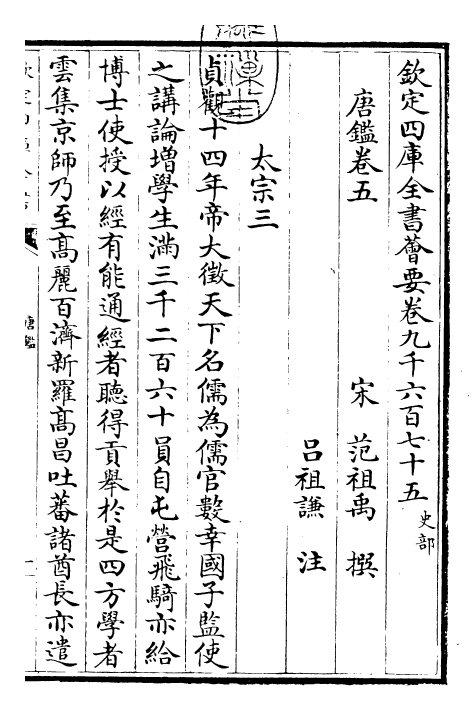 欽定四庫全書薈要卷九千六百七十五 史部
唐鑑卷五
宋 范祖禹 撰
呂祖謙 注
太宗三
貞觀十四年帝大徵天下名儒為儒官數幸國子監使
之講論增學生滿三千二百六十員自屯營飛騎亦給
博士使授以經有能通經者聽得貢舉於是四方學者
雲集京師乃至髙麗百濟新羅髙昌吐蕃諸酋長亦遣
唐鑑